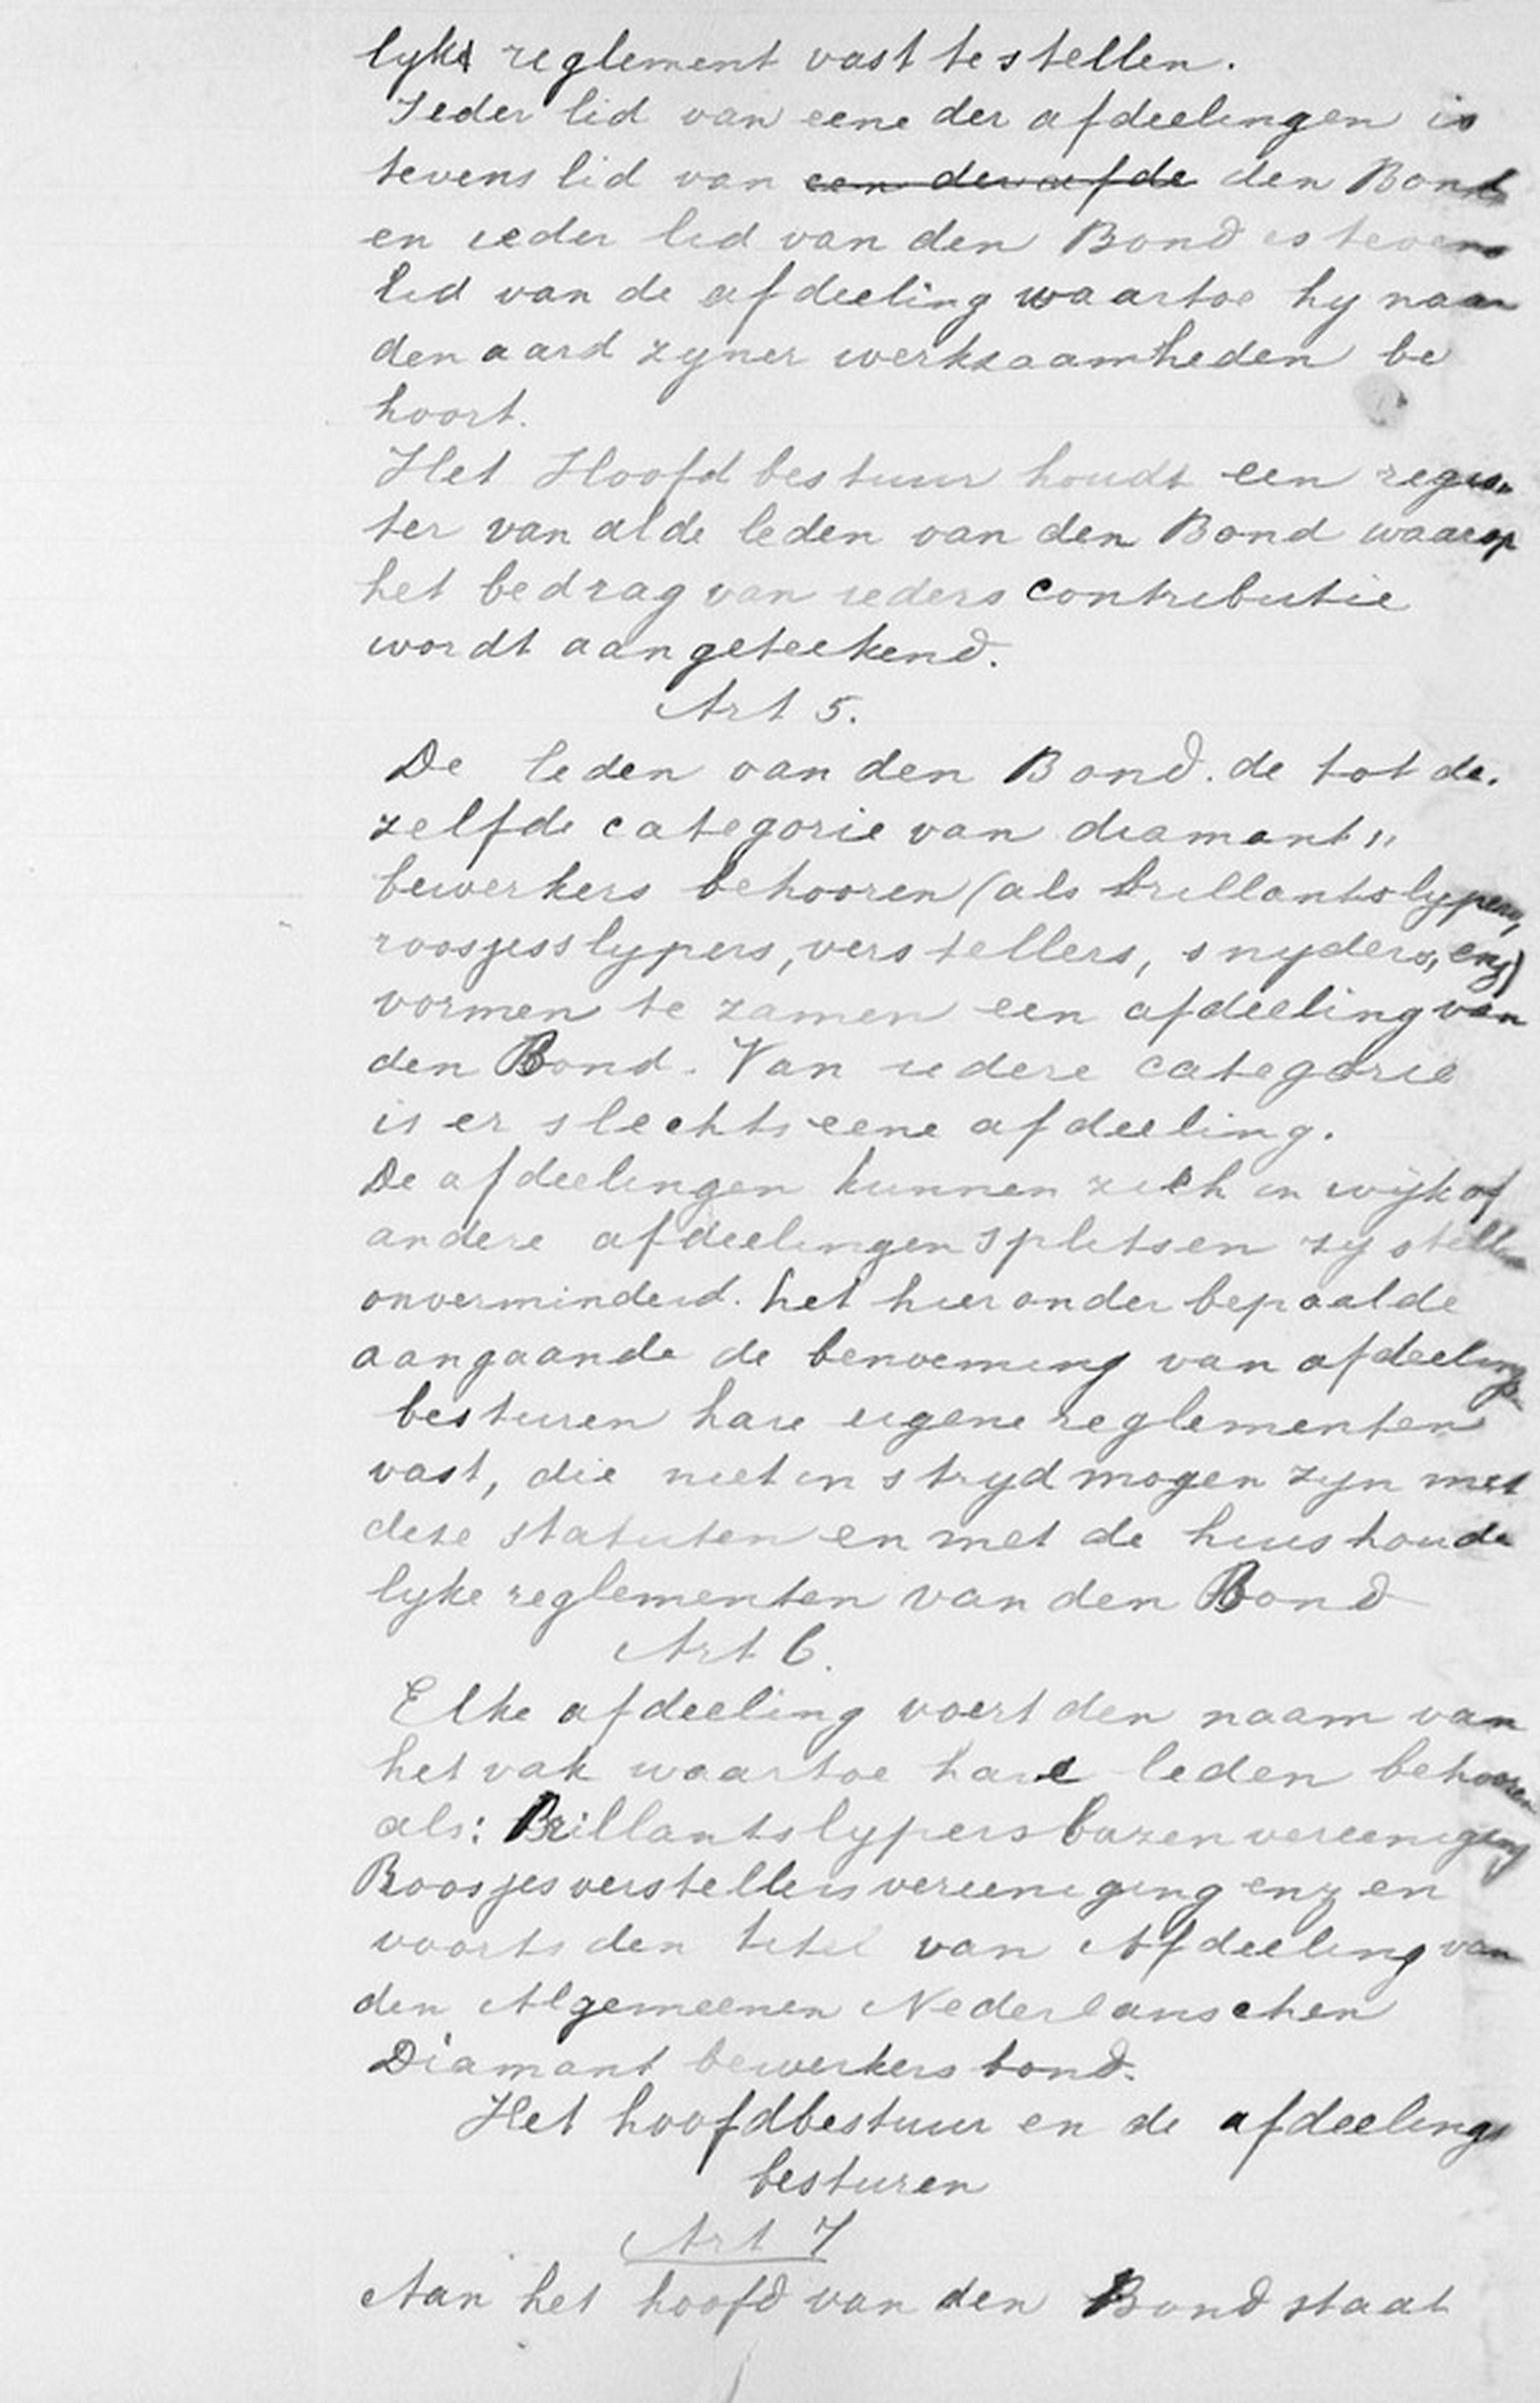 lyk reglement vast te stellen.
Ieder lid van eene der afdeelingen is
tevens lid van een der afde den Bond
en ieder lid van den Bond is tevens
lid van de afdeeling waartoe hy naar
den aard zyner werkzaamheden be
hoort.
Het Hoofdbestuur houdt een regis„
ter van al de leden van den Bond waarop
het bedrag van ieders contributie
wordt aangeteekend.
Art 5.
De leden van den Bond. de tot de.
zelfde categorie van diamant„
bewerkers behooren (als brillantslypers,
roosjesslypers, verstellers, snyders, enz)
vormen te zamen een afdeeling van
den Bond. Van iedere categorie
is er slechts eene afdeeling.
De afdeelingen kunnen zich in wijk of
andere afdeelingen splitsen zy stellen
onverminderd. het hieronder bepaalde
aangaande de benoeming van afdeelings
besturen hare eigene reglementen
vast, die niet in stryd mogen zyn met
deze statuten en met de huishoude
lyke reglementen van den Bond
Art 6.
Elke afdeeling voert den naam van
het vak waartoe hare leden behooren
als: Brillantslypersbazenvereeniging
Roosjesverstellersvereeniging enz en
voorts den titel van Afdeeling van
den Algemeenen Nederlanschen
Diamant bewerkers bond.
Het hoofdbestuur en de afdeelings
besturen
Art 7
Aan het hoofd van den Bond staat